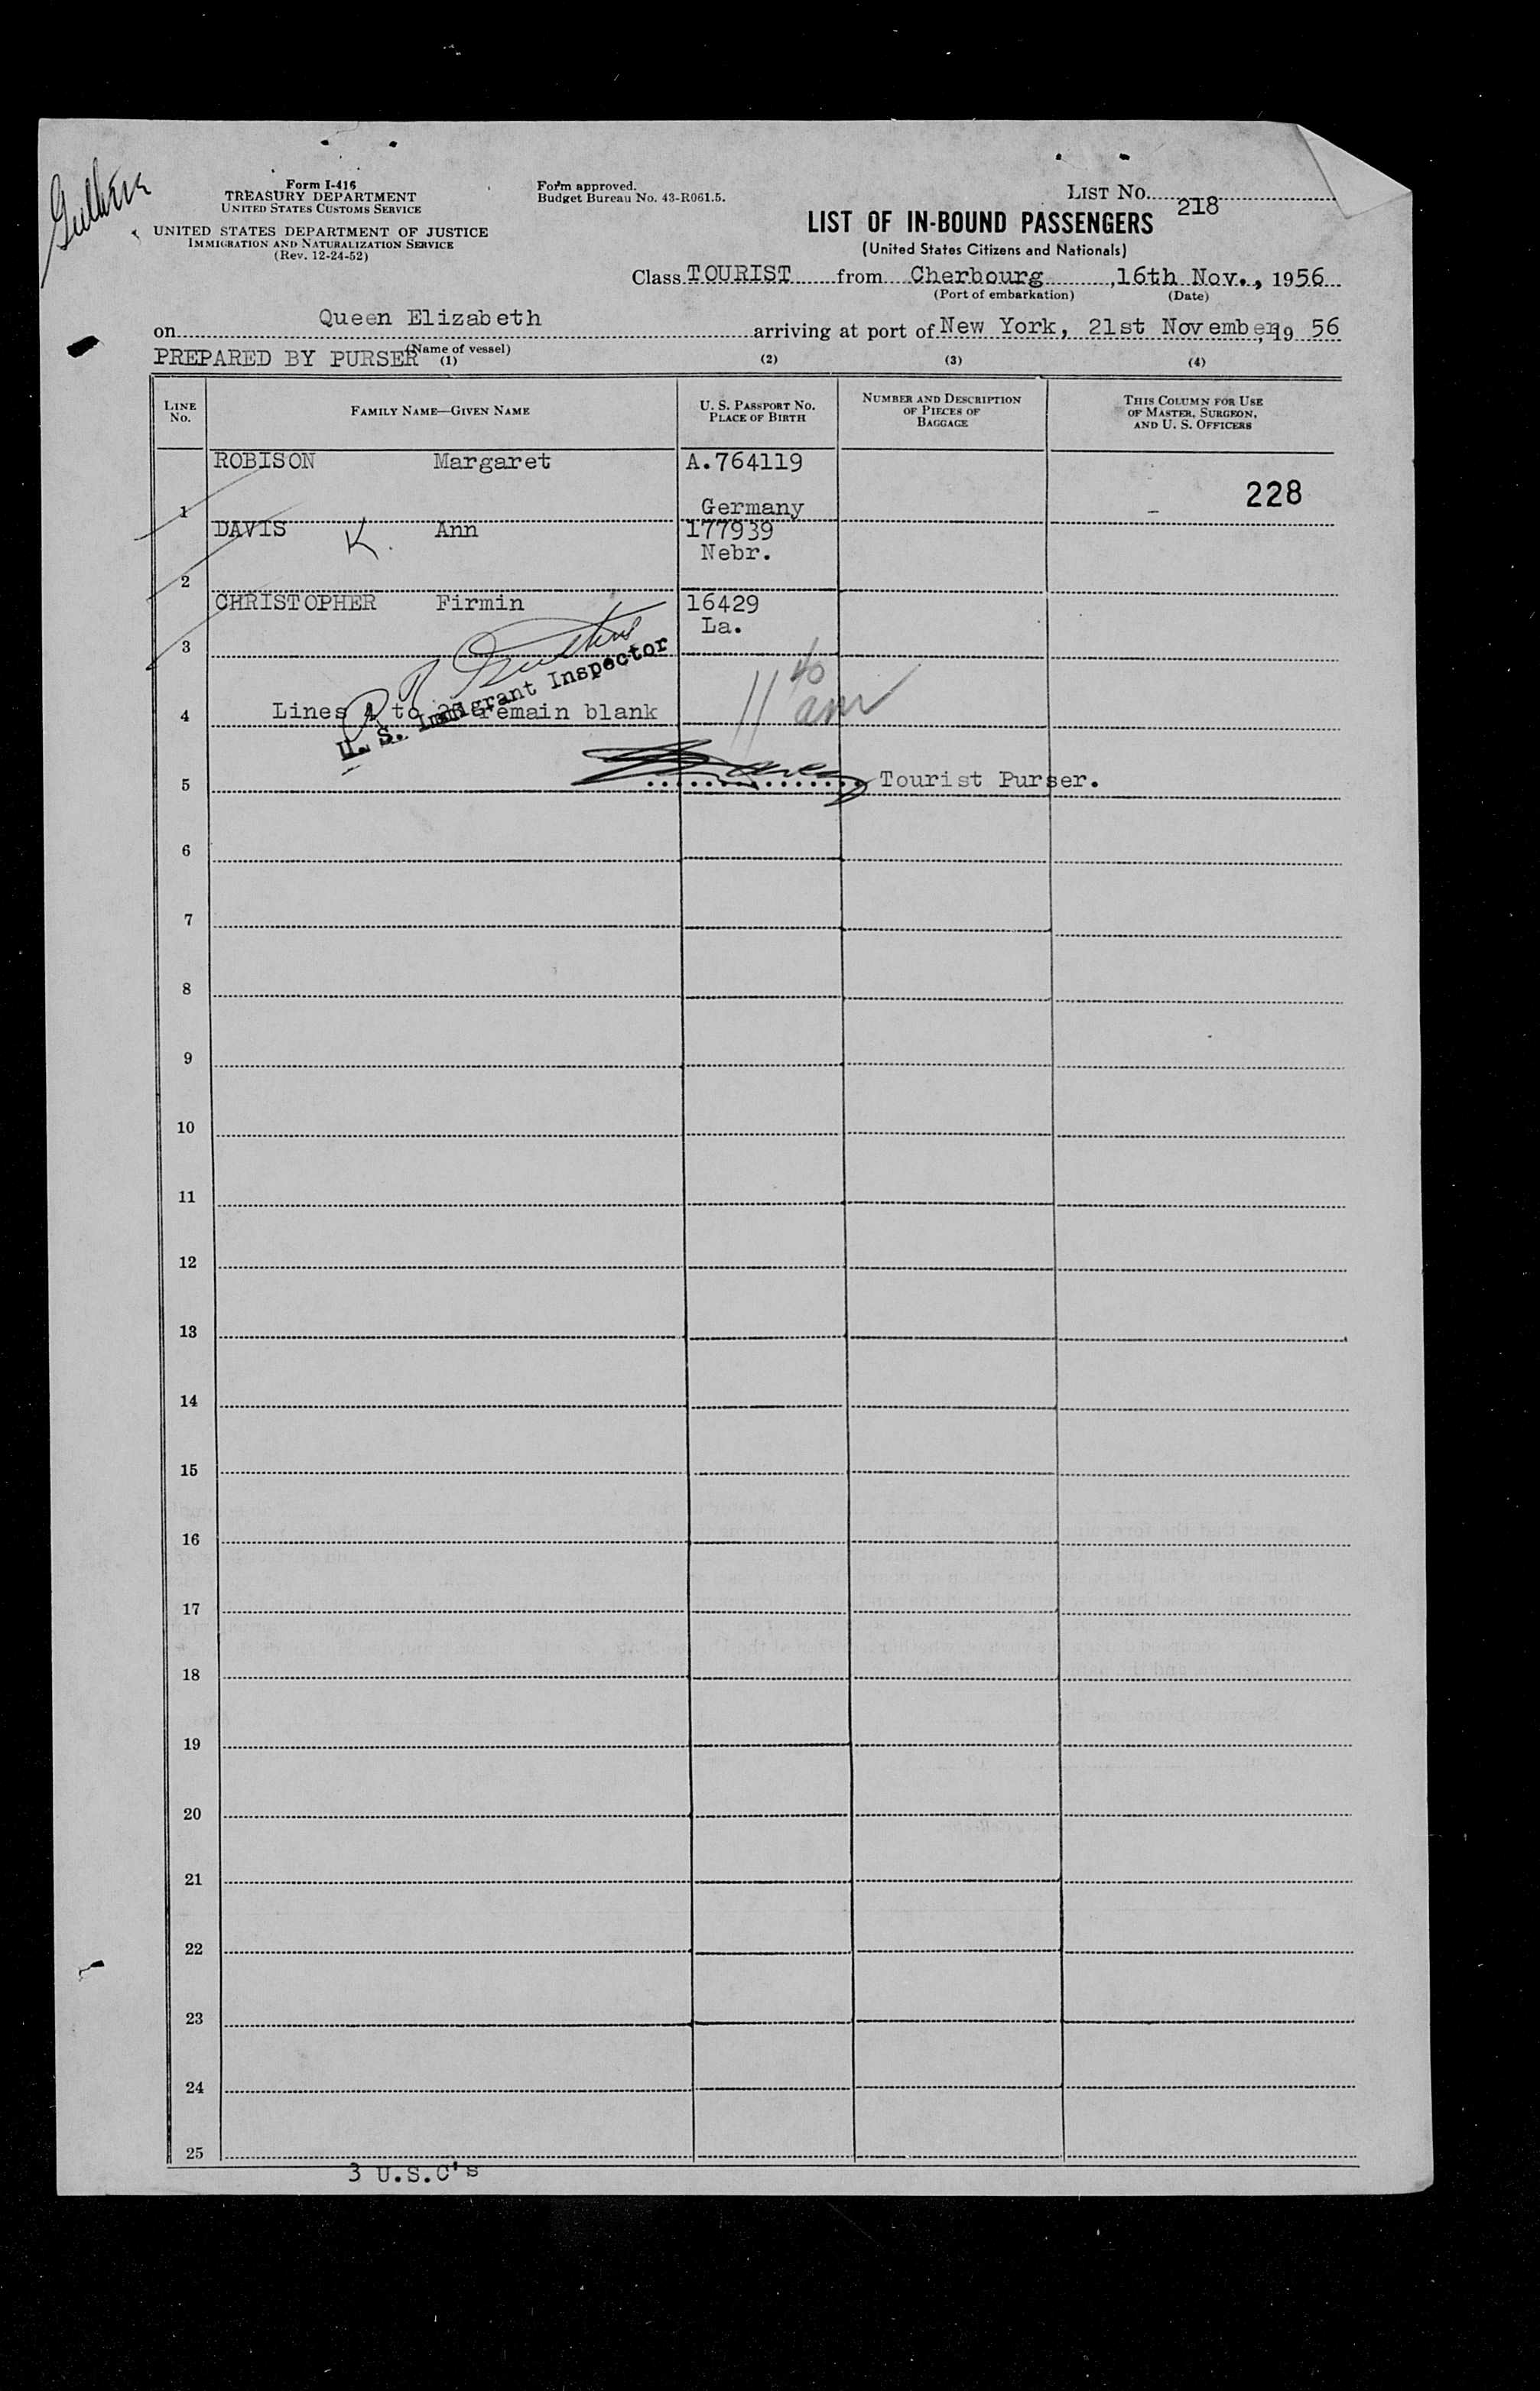 Form I-416
TREASURY DEPARTMENT
UNITED STATES CUSTOMS SERVICE
UNITED STATES DEPARTMENT OF JUSTICE
IMMIGRATION AND NATURALIZATION SERVICE
(Rev. 12-24-52)
Form approved.
Budget Bureau No. 43-R061.5.
LIST NO. 218
LIST OF IN-BOUND PASSENGERS
(United States Citizens and Nationals)
Class TOURIST from Cherbourg, 16th Nov., 1956
(Port of embarkation) (Date)
on Queen Elizabeth arriving at port of New York, 21st November, 19 56
(Name of vessel)
PREPARED BY PURSER
(1) (2) (3) (4)
LINE NO.
FAMILY NAME—GIVEN NAME
U. S. PASSPORT NO.
PLACE OF BIRTH
NUMBER AND DESCRIPTION
OF PIECES OF
BAGGAGE
THIS COLUMN FOR USE
OF MASTER, SURGEON,
AND U. S. OFFICERS
ROBISON Margaret A.764119
1 Germany 228
DAVIS K. Ann 177939
Nebr.
2
CHRISTOPHER Firmin 16429
La.
3
U. S. Immigrant Inspector
11 40 am
4 Lines 4 to 25 remain blank
5 Tourist Purser.
6
7
8
9
10
11
12
13
14
15
16
17
18
19
20
21
22
23
24
25
3 U.S.C's